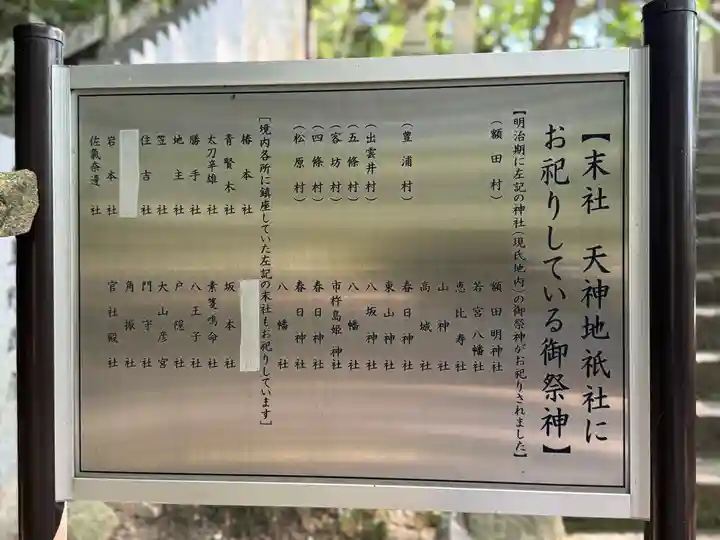 【末社 天神地祇社に
お祀りしている御祭神】
【明治期に左記の神社(現氏地内)の御祭神がお祀りされました】
(額田村) 額田明神社
若宮八幡社
恵比寿社
山神社
高城社
(豊浦村) 春日神社
東山神社
(出雲井村) 八坂神社
(五條村) 八幡神社
(客坊村) 市杵島姫神社
(四條村) 春日神社
春日神社
(松原村) 八幡社
[境内各所に鎮座していた左記の末社もお祀りしています]
椿本社
青賢木社 坂本社
太刀辛雄社 素箋嗚命社
勝手社 八王子社
地主社 戸隠社
笠社 大山彦宮
住吉社 門守社
角振社
岩本社 官社殿社
佐氣奈邊社